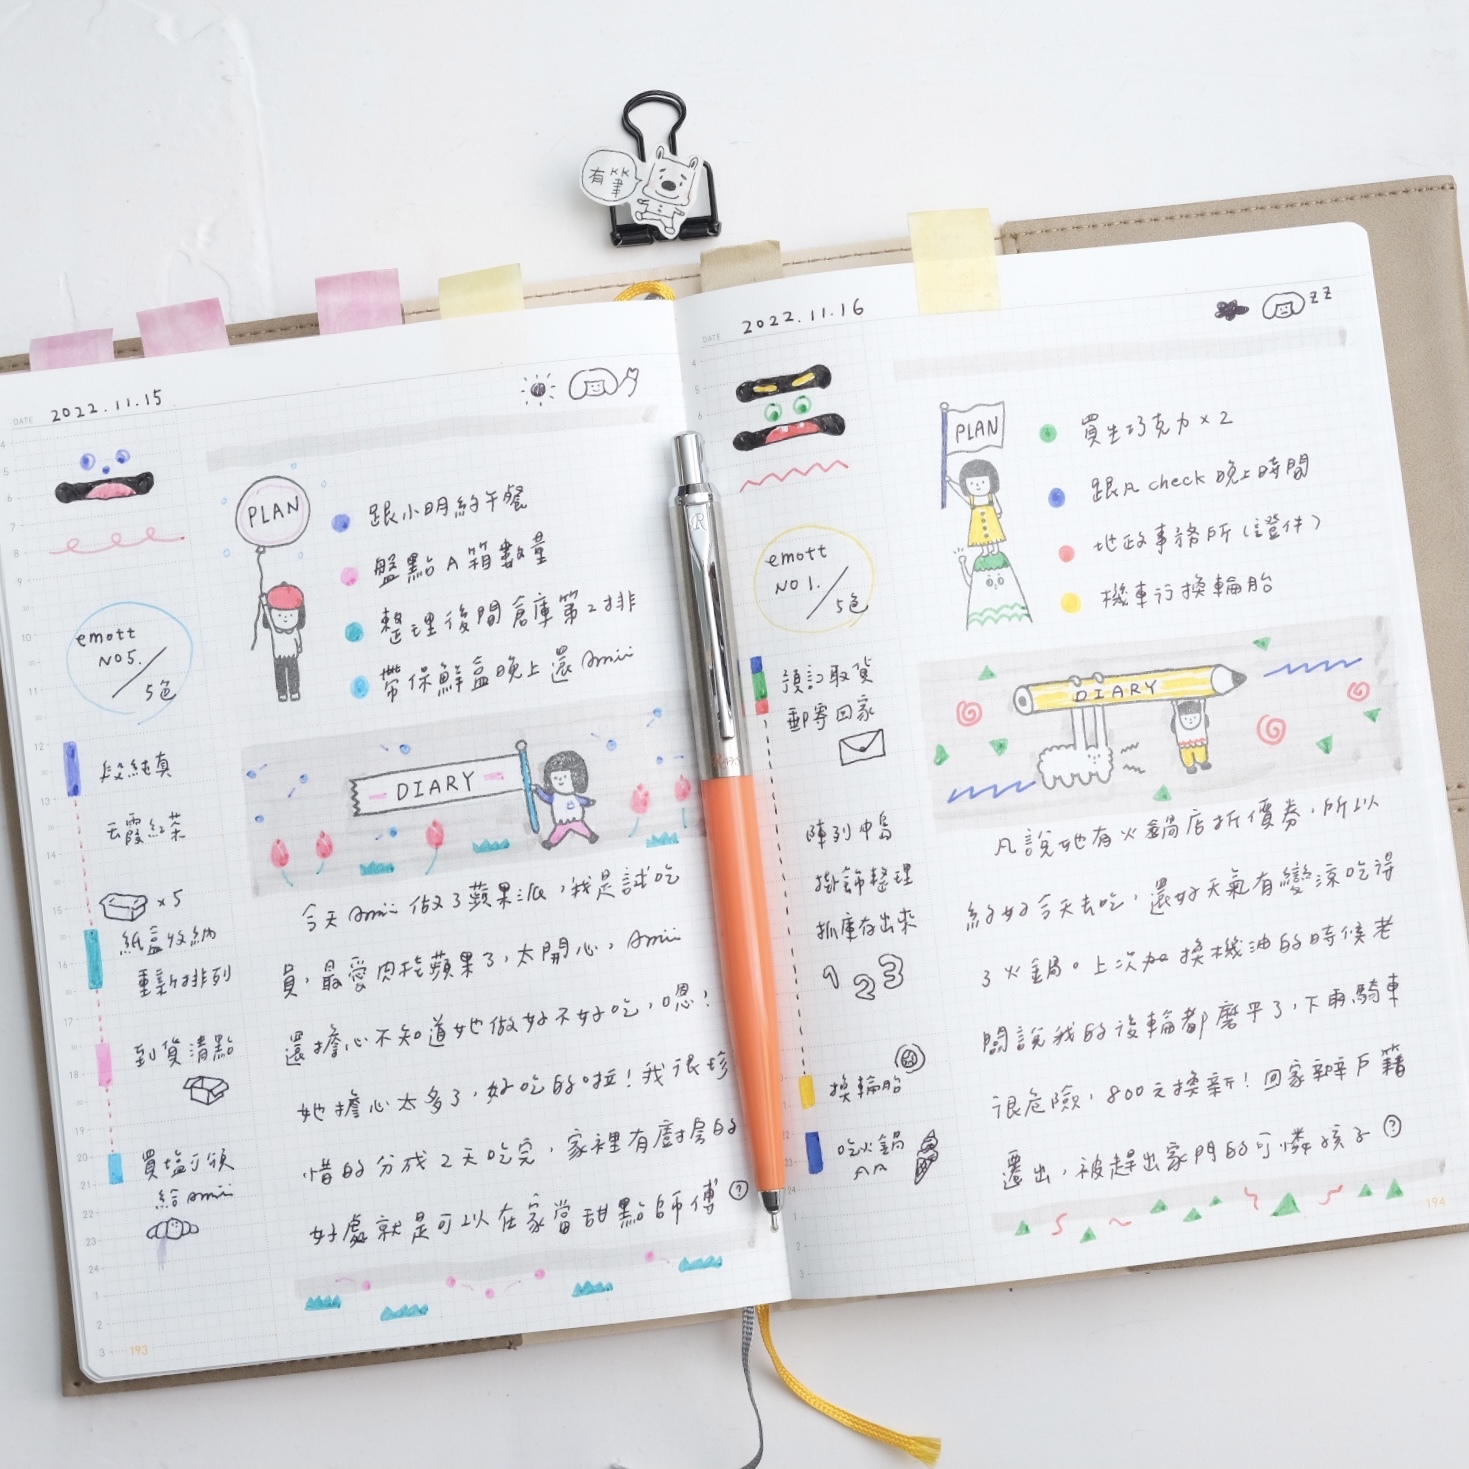 有筆
DATE 2022.11.15
PLAN
跟小明約午餐
盤點A箱數量
整理後間倉庫第2排
帶保鮮盒晚上還Amii
emott
NO5.
5色
段純真
雲霞紅茶
×5
紙盒收納
重新排列
到貨清點
買塩可頌
給Amii
DIARY
今天Amii做了蘋果派,我是試吃
員,最愛肉桂蘋果了,太開心,Amii
還擔心不知道她做好不好吃,嗯!
她擔心太多了,好吃的啦!我很珍
惜的分成2天吃完,家裡有廚房的
好處就是可以在家當甜點師傅?
193
DATE 2022.11.16
zz
PLAN
買生巧克力×2
跟凡check晚上時間
地政事務所(證件)
機車行換輪胎
emott
NO1.
5色
預訂取貨
郵寄回家
陣列中島
掛飾整理
抓庫存出來
123
換輪胎
吃火鍋
DIARY
凡說她有火鍋店折價券,所以
約好今天去吃,還好天氣有變涼吃得
了火鍋。上次加換機油的時候老
闆說我的後輪都磨平了,下雨騎車
很危險,800元換新!回家辦戶籍
遷出,被趕出家門的可憐孩子?
194